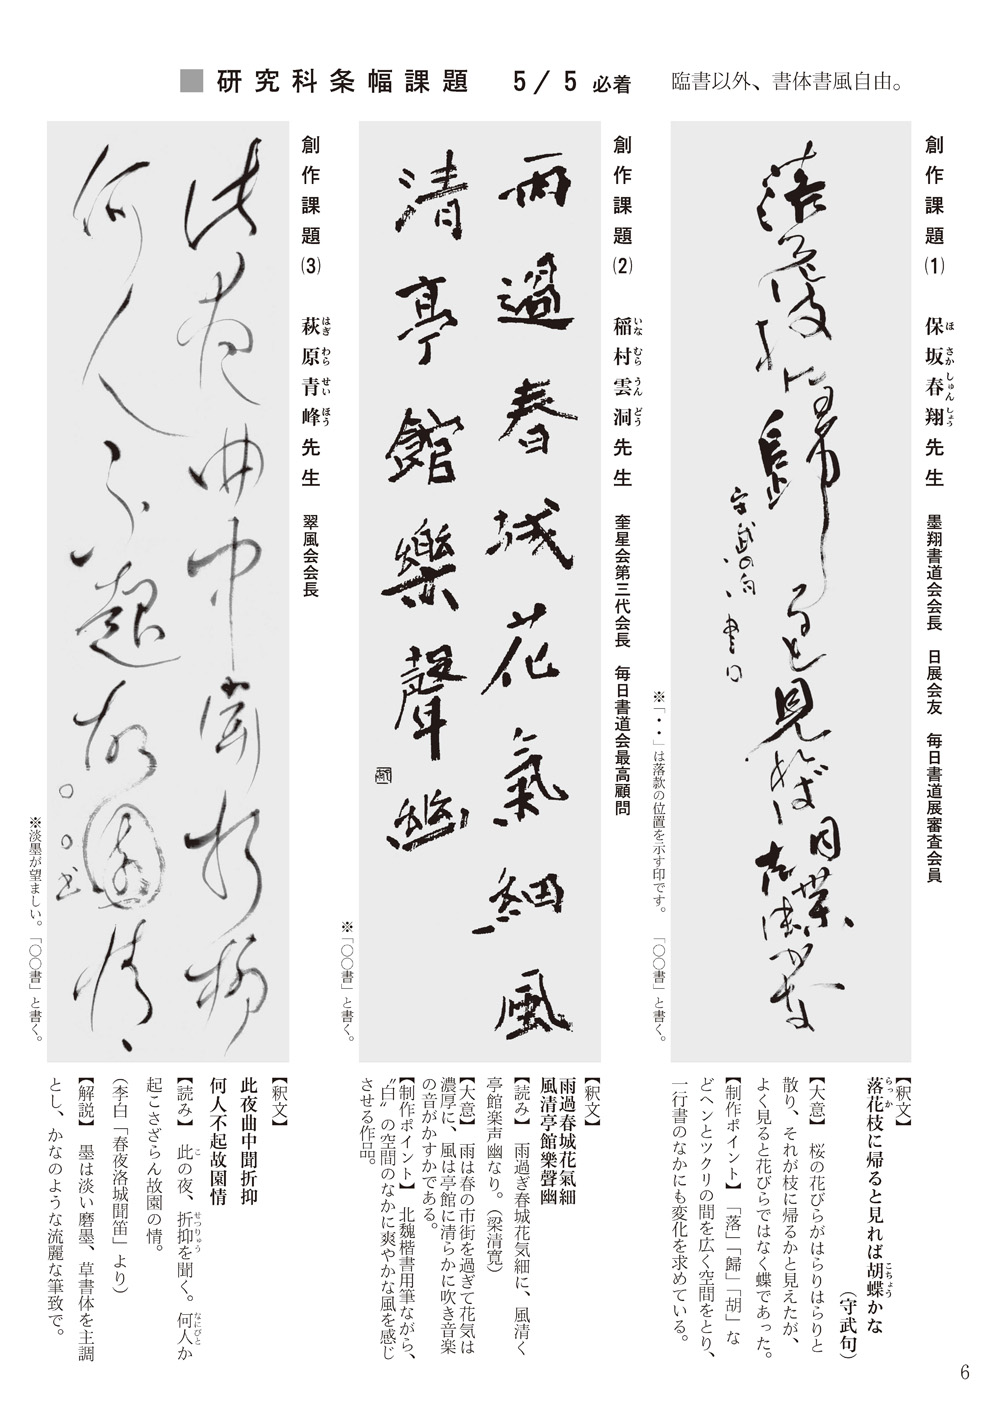 ■研究科条幅課題 5/5必着 臨書以外、書体書風自由。
創作課題(1) 保坂春翔先生 墨翔書道会会長 日展会友 毎日書道展審査会員
ほ さか しゅん しょう
守武の句 書
※「・・」は落款の位置を示す印です。「〇〇書」と書く。
【釈文】
落花枝に帰ると見れば胡蝶かな
らっか こちょう
(守武句)
【大意】 桜の花びらがはらりはらりと
散り、それが枝に帰るかと見えたが、
よく見ると花びらではなく蝶であった。
【制作ポイント】「落」「歸」「胡」な
どヘンとツクリの間を広く空間をとり、
一行書のなかにも変化を求めている。
創作課題(2) 稲村雲洞先生 奎星会第三代会長 毎日書道会最高顧問
いな むら うん どう
雨過春城花氣細風
清亭館樂聲幽
※「〇〇書」と書く。
【釈文】
雨過春城花氣細
風清亭館樂聲幽
【読み】 雨過ぎ春城花気細に、風清く
亭館楽声幽なり。(梁清寛)
【大意】 雨は春の市街を過ぎて花気は
濃厚に、風は亭館に清らかに吹き音楽
の音がかすかである。
【制作ポイント】 北魏楷書用筆ながら、
〝白〟の空間のなかに爽やかな風を感じ
させる作品。
創作課題(3) 萩原青峰先生 翠風会会長
はぎ わら せい ほう
此夜曲中聞折柳
何人不起故園情
〇〇書
※淡墨が望ましい。「〇〇書」と書く。
【釈文】
此夜曲中聞折抑
何人不起故園情
【読み】 此の夜、折抑を聞く。何人か
こ せつりゅう なにびと
起こさざらん故園の情。
(李白「春夜洛城聞笛」より)
【解説】 墨は淡い磨墨、草書体を主調
とし、かなのような流麗な筆致で。
6